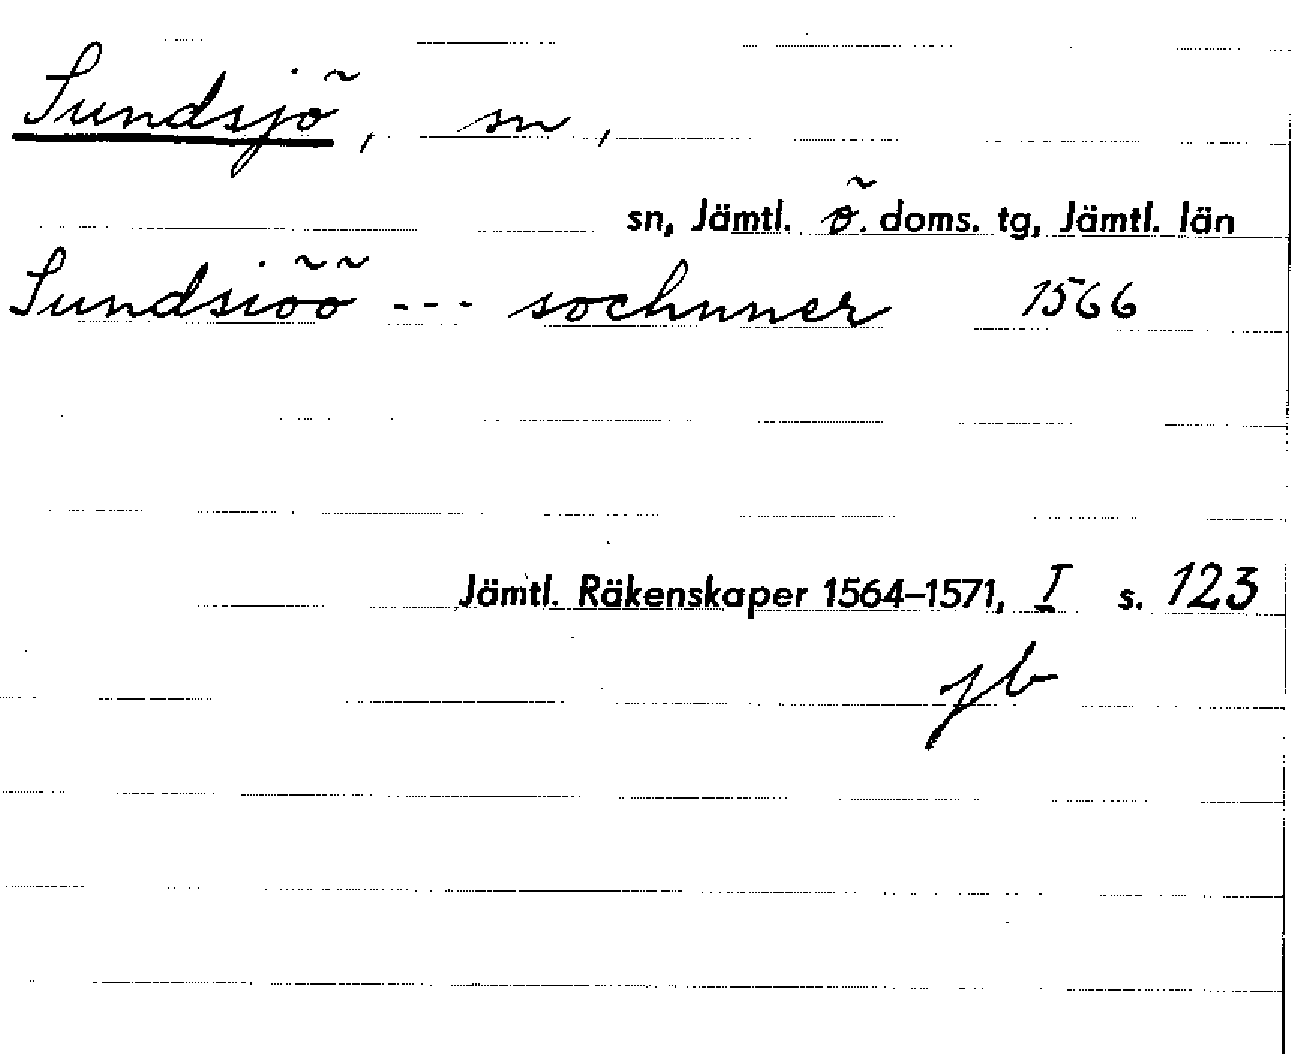 Sundsjö, sn,
sn, Jämtl. ö. doms. tg, Jämtl. län
Sundsiöö --- sochnner 1566
Jämtl. Räkenskaper 1564–1571, I s. 123